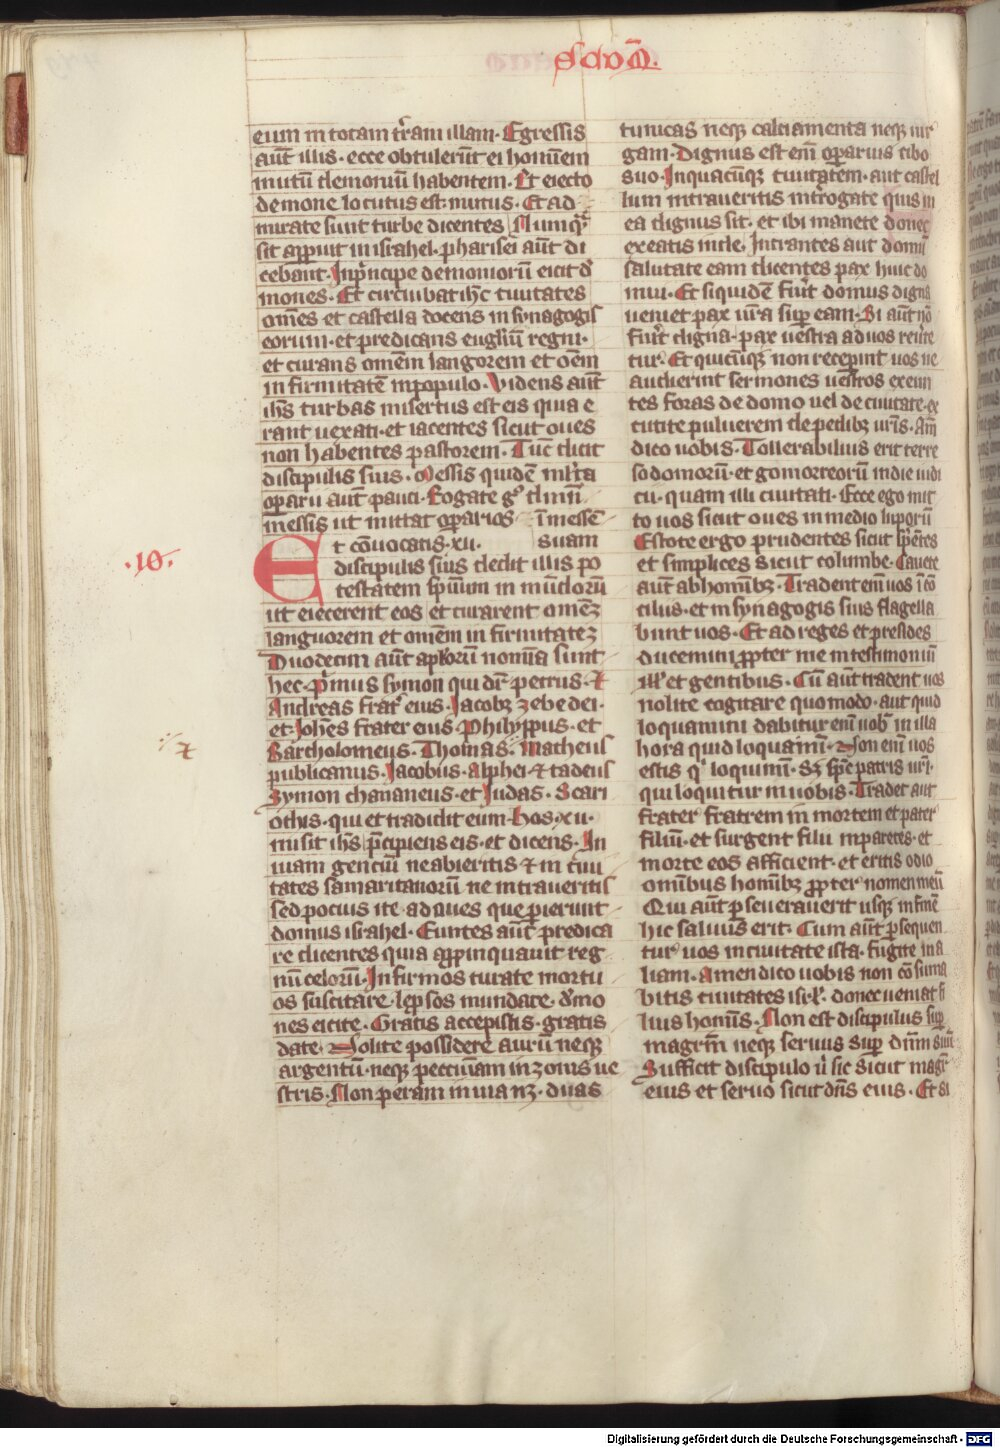 Scdm.
eum in totam t̉ram illam. Egressis
aūt illis. ecce obtulerūt ei hominem
mutū demoniū habentem. Et eiecto
demone locutus est mutus. Et ad
mirate sunt turbe dicentes Nunqͣ
sic apparuit in israhel. pharisei aūt di
cebant. In pͥncipe demoniorū eicit de
mones. Et circuibat ihc̄ ciuitates
om̄es et castella docens in synagogis
eorum. et predicans eugl̄iū regni.
et curans om̄em langorem et om̄em
infirmitatē in populo. Videns aūt
ih̄s turbas misertus est eis quia e
rant uexati. et iacentes sicut oues
non habentes pastorem. Tūc dicit
discipulis suis. Messis quidē ml̄ta
operarii aūt pauci. Rogate gͦ dn̄m
messis ut mittat operarios in messē
suam
.10.
Et cōuocatis .xii.
discipulis suis dedit illis po
testatem sp̄uum inmūdorū
ut eiecerent eos et curarent omēꝫ
languorem et om̄em infirmitateꝫ
Duodecim aūt apl̄orū nomīa sunt
hec. pͥmus symon qui dr̄ petrus. ⁊
Andreas frat̉ eius. Jacobꝫ zebedei.
et Joh̄es frater eius Philyppus. et
Bartholomeus. Thomas. Matheus
publicanus. Jacobus. Alphei. ⁊ tadeus
Symon chananeus. et Judas. Scari
othis. qui et tradidit eum. hos .xii.
misit ih̄s p̄cipiens eis. et dicens. In
uiam genciū ne abieritis ⁊ in ciui
tates samaritanorū ne intraueritis
sed pocius ite ad oues que perierunt
domus israhel. Euntes aūt predica
re dicentes quia appinquauit reg
nū celorū. Infirmos curate mortu
os suscitare. lepsos mundate. demo
nes eicite. Gratis accepistis. gratis
date. Nolite possidere aurū neqꝫ
argentū. neqꝫ peccuniam in zonis ue
stris. Non peram in uia nꝫ. duas
tunicas neqꝫ calciamenta neqꝫ uir
gam. Dignus est em̄ operarius cibo
suo. In quacūqꝫ ciuitatem. aut castel
lum intraueritis int̉rogate quis in
ea dignus sit. et ibi manete donec
exeatis inde. Intrantes aut domū
salutate eam dicentes pax huic do
mui. Et siquidē fu̅it domus digna
ueniet pax ur̄a super eam. Si aūt nō
fu̅it digna. pax uestra ad uos reu̅te
tur. Et quicūqꝫ non recepint uos ne
audierint sermones uestros exeun
tes foras de domo uel de ciuitate. ex
cutite puluerem de pedibꝫ ur̄is. Am̄
dico uobis. Tollerabilius erit terre
sodomorū. et gomorreorū in die iudi
cii. quam illi ciuitati. Ecce ego mit
to uos sicut oues in medio luporū
Estote ergo prudentes sicut sp̄entes
et simplices sicut columbe. Cauete
aūt ab homībꝫ. Tradent em̄ uos i cō
cilus. et in synagogis suis flagella
bunt uos. Et ad reges et presides
ducemini ppter me in testimoniū
ill̉ et gentibus. Cū aūt tradent uos
nolite cogitare quomodo. aut quid
loquamini dabitur em̄ uob̄ in illa
hora quid loquamī. Non em̄ uos
estis qͥ loquimī. Sꝫ sp̄c patris ur̄i.
qui loquitur in uobis. Tradet aut
frater fratrem in mortem et pater
filiū. et surgent filii in paretes. et
morte eos afficient. et eritis odio
omībus homībꝫ ppter nomen meū
Qui aūt pseuerauerit usqꝫ in finē
hic saluus erit. Cum aūt psequen
tur uos in ciuitate ista. fugite in a
liam. Amen dico uobis non cōsuma
bitis ciuitates isrl̄. donec ueniat fi
lius homīs. Non est discipulus sup
magrm̄ neqꝫ seruus sup dn̄m suū
Sufficit discipulo ut sic sicut magr̄
eius et seruo sicut dn̄s eius. Et si
Digitalisierung gefördert durch die Deutsche Forschungsgemeinschaft - DFG